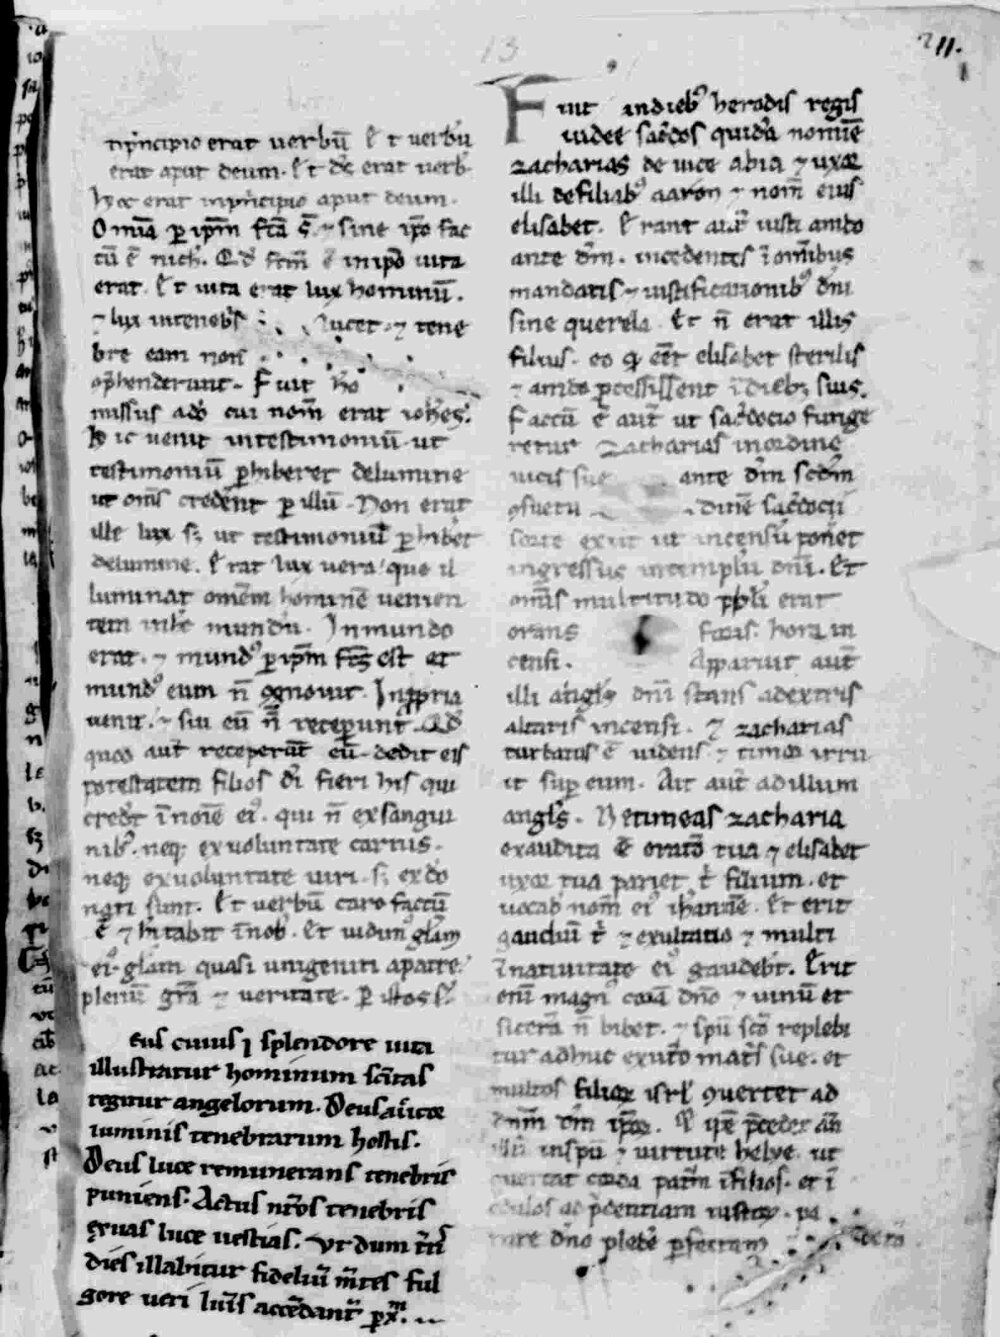 nprincipio erat uerbū. Et uerbū
erat aput deum. Et ds̄ erat uerb̄.
hoc erat inprincipio aput deum.
Omīa ꝑ ip̄m fc̄a s̄. ⁊ sine ip̄o fac
tū ē nich̄. Qd̄ fc̄m ē inip̄o uita
erat. Et uita erat lux hominū.
⁊ lux intenebris lucet. ⁊ tene
bre eam non
op̄henderunt. Fuit hō
missus adō cui nom̄ erat ioh̄es.
Hic uenit intestimoniū. ut
testimoniū ꝑhiberet delumine
ut om̄s crederent ꝑ illū. Non erat
ille lux sꝫ ut testimoniū ꝑhiberet
delumine. Erat lux uera. que il
luminat omēm hominē uenien
tem inhc̄ mundū. Inmundo
erat. ⁊ mundꝰ ꝑ ip̄m fc̄s est et
mundꝰ eum n̄ ꝯgnouit. Inꝓpria
uenit. ⁊ sui eū n̄ receperunt. Qd̄
quod aut̄ receperūt eū. dedit eis
potestatem filios dī fieri his qui
cred̄t īnoīe eiꝰ. qui n̄ exsangui
nibꝰ. neqꝫ exuoluntate carnis.
neqꝫ exuoluntate uiri. sꝫ exdō
nati sunt. Et uerbū caro factū
ē ⁊ hitabit īnob. Et uidimꝰ glam̄
eiꝰ. glam̄ quasi unigeniti apatre.
plenū grā ⁊ ueritate. Per istos s.
eus cuius splendore uita
illustratur hominum sc̄itas
regitur angelorum. Deus auctor
luminis tenebrarum hostis.
Deus luce remunerans tenebris
puniens. Actus nr̄os tenebris
exuas luce uestias. Vt dum
dies illabitur fideliū m̄tes ful
gore ueri luīs accēdant̄. ꝑ xm̄.
211.
13
Fuit indiebꝰ herodis regis
iudee sac̄dos quidā nomīe
zacharias de uice abia ⁊ uxor
illi defiliabꝰ aaron ⁊ nom̄ eius
elisabet. Erant aut̄ iusti ambo
ante dm̄. incedentes ī om̄ibus
mandatis ⁊ iustificationibꝰ dn̄i
sine querela. Et n̄ erat illis
filius. eo qd̄ eet̄ elisabet sterilis
⁊ ambo ꝓcessissent ī diebꝫ suis.
Factū ē aut̄ ut sac̄docio funge
retur Zacharias inordine
uicis sue ante dm̄ scd̄m
ꝯsuetu dinē sac̄docii
sorte exiit ut incensū poneret
ingressus intemplū dn̄i. Et
om̄is multitudo pp̄li erat
orans foris. hora in
censi. Apparuit aut̄
illi angls̄ dn̄i stans adextris
altaris incensi. ⁊ zacharias
turbatus ē uidens ⁊ timor irru
it super eum. Ait aut̄ adillum
angls̄. Netimeas zacharia
exaudita ē oratō tua ⁊ elisabet
uxor tua pariet t̄ filium. et
uocab nom̄ eiꝰ ioh̄annē. Et erit
gaudiū t̄ ⁊ exultatio ⁊ multi
īnatiuitate eiꝰ gaudeb̄t. Erit
enī magnꝰ corā dn̄o ⁊ uinū et
sicerā n̄ bibet. ⁊ sp̄u sc̄o replebi
tur adhuc exutō matris sue. et
multos filior isrl̄ ꝯuertet ad
dn̄m dm̄ ip̄or. Et ip̄e p̄cedet an̄
illū insp̄u ⁊ uirtute helye. ut
ꝯuertat corda patrū īfilios. et ī
ad p̄dentiam iustor. pa
rare dn̄o plebē ꝑfectam